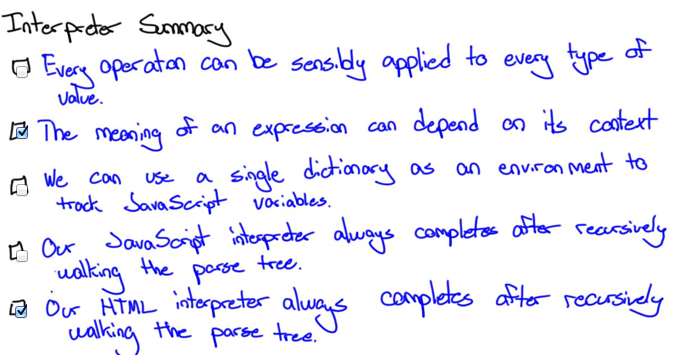 Interpreter Summary
Every operation can be sensibly applied to every type of
value.
The meaning of an expression can depend on its context
We can use a single dictionary as an environment to
track JavaScript variables.
Our JavaScript interpreter always completes after recursively
walking the parse tree.
Our HTML interpreter always completes after recursively
walking the parse tree.